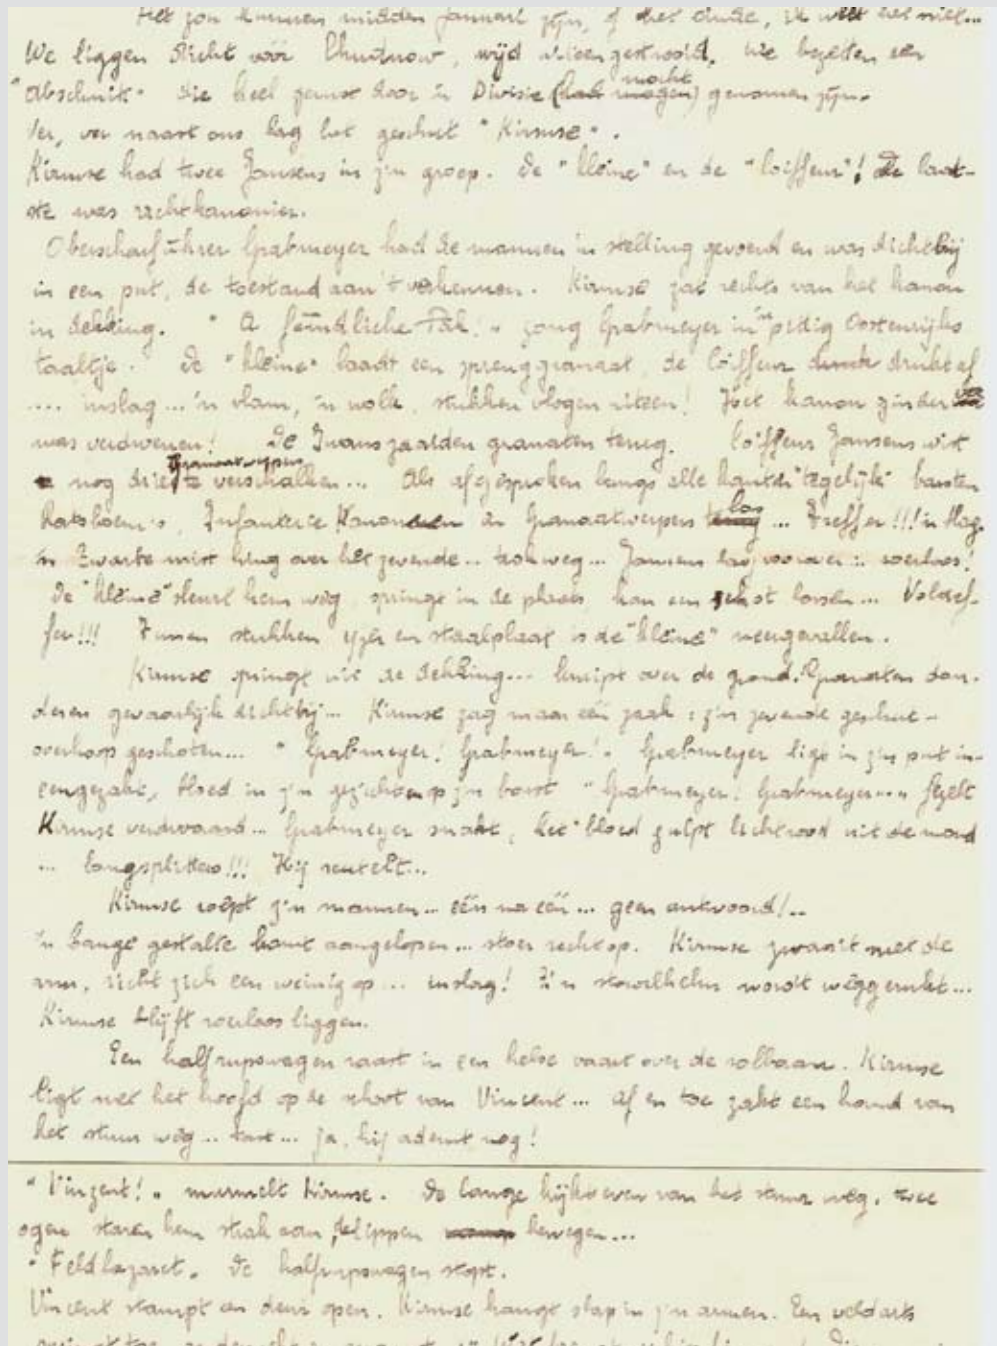 Het zou kunnen midden Januari zijn, of het einde, ik weet het niet...
We liggen dicht voor Chudnow, wijd uiteengestrooid, we bezetten een
"Abschnitt" die heel gerust door 'n Divisie (had mogen) mocht genomen zijn.
Ver, ver naast ons lag het geschut "Kirmse".
Kirmse had twee Jansens in z'n groep. De "kleine" en de "coiffeur"! De laat-
ste was richtkanonier.
Oberscharführer Grabmeyer had de mannen in stelling gevoerd en was dichtbij
in een put, de toestand aan 't verkennen. Kirmse zat rechts van het kanon
in dekking. "A feindliche Pak!" zong Grabmeyer in z'n Oostenrijks
taaltje. De "kleine" laadt een spreng granaat, de coiffeur drukt af
.... inslag... 'n vlam, 'n wolk, stukken vlogen uiteen! Het kanon ginder
was verdwenen! De Iwans zaaiden granaten terug. Coiffeur Jansens wist
nog drie granaatwerpers te verschalken... Als afgesproken langs alle kanten tegelijk barsten
Ratsboem's, Infanterie Kanonnen en Granaatwerpers los... Treffer!!! 'n slag.
'n Zwarte mist hing over het zevende... trok weg... Jansens lag voorover: roerloos!
De "kleine" sleurt hem weg, springt in de plaats, kan een schot lossen... Voltref-
fer!!! Tussen stukken ijzer en staalplaat is de "kleine" neergevallen.
Kirmse springt uit de dekking... kruipt over de grond. Granaten don-
deren gevaarlijk dichtbij... Kirmse zag maar één zaak: z'n zevende geschut -
overhoop geschoten... "Grabmeyer! Grabmeyer!" Grabmeyer ligt in z'n put in-
eengezakt, bloed in z'n gezicht en op z'n borst "Grabmeyer! Grabmeyer..."
Kirmse verdwaasd... Grabmeyer snakt, het bloed gulpt lichtrood uit de mond
... Longsplitters!!! Hij reutelt...
Kirmse roept z'n mannen... één na één... geen antwoord!..
'n Lange gestalte komt aangelopen... stoer rechtop. Kirmse zwaait met de
arm, richt zich een weinig op... inslag! Z'n staalhelm wordt weggerukt...
Kirmse blijft roerloos liggen.
Een halfrupswagen raast in een helse vaart over de rolbaan. Kirmse
ligt met het hoofd op de schoot van Vincent... af en toe zakt een hand van
het stuur weg... tast... ja, hij ademt nog!
"Vinzent!" murmelt Kirmse. De lange kijkt even van het stuur weg, twee
ogen staren hem strak aan, de lippen bewegen...
"Feldlazaret". De halfrupswagen stopt.
Vincent stampt een deur open. Kirmse hangt slap in z'n armen. Een veldarts